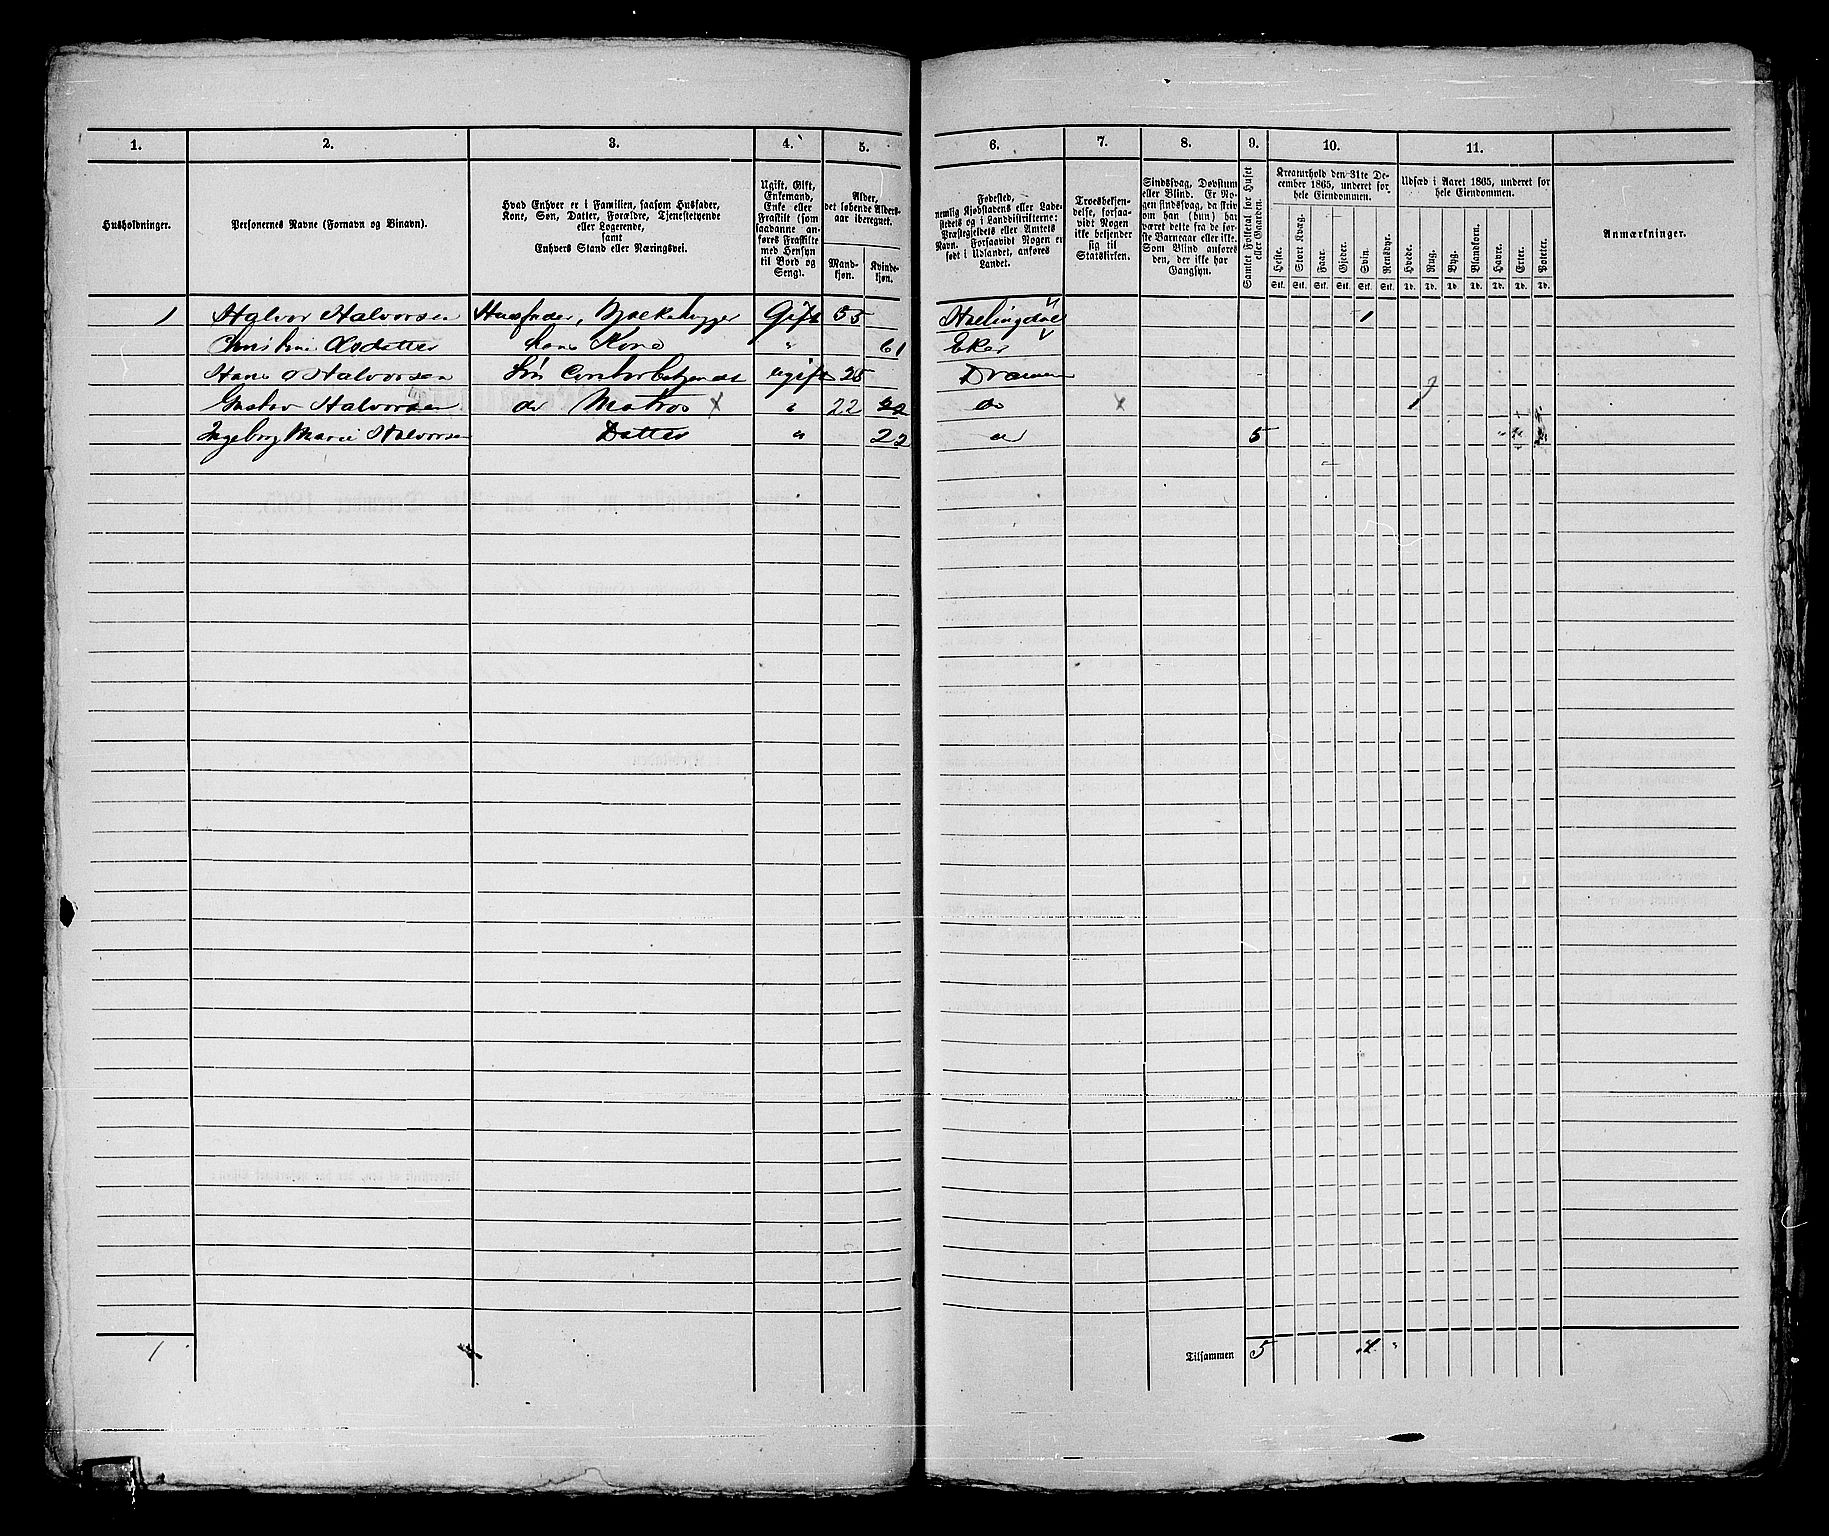 1. 2. 3. 4. 5. 6. 7. 8. 9. 10. 11.
Husholdninger.
Personernes Navne (Fornavn og Binavn).
Hvad Enhver er i Familien, saasom Husfader,
Kone, Søn, Datter, Forældre, Tjenestetyende
eller Logerende,
samt
Enhvers Stand eller Næringsvei.
Ugift, Gift,
Enkemand,
Enke eller
Fraskilt (som
saadanne an-
føres Fraskilte
med Hensyn
til Bord og
Seng).
Alder,
det løbende Alders-
aar iberegnet.
Mand-
kjøn.
Kvinde-
kjøn.
Fødested,
nemlig Kjøbstadens eller Lade-
stedets og i Landdistrikterne:
Præstegjeldets eller Amtets
Navn. Forsaavidt Nogen er
født i Udlandet, anføres
Landet.
Troesbekjen-
delse, forsaa-
vidt Nogen
ikke bekjender
sig til
Statskirken.
Sindssvag, Døvstum
eller Blind. Er No-
gen sindssvag, da skriv
om han (hun) har
været dette fra de før-
ste Barneaar eller ikke.
Som Blind anføres
den, der ikke har
Gangsyn.
Samlet Folketal for Huset
eller Gaarden.
Kreaturhold den 31te De-
cember 1865, underet for
hele Eiendommen.
Heste. Stort Kvæg. Faar. Gjeder. Svin. Rensdyr.
Stk. Stk. Stk. Stk. Stk. Stk.
Udsæd i Aaret 1865, underet for
hele Eiendommen.
Hvede. Rug. Byg. Blankorn. Havre. Erter. Poteter.
Td. Td. Td. Td. Td. Td. Td.
Anmærkninger.
1 Halvor Halvorsen Huusfader, Gift 55 Hallingdal 1
hans Kone " 61 Eker
Hans Halvorsen Søn ugift 25 Dramen
Gustav Halvorsen do Matros x " 22 do x
Ingeborg Marie Halvorsen Datter " 22 do 5
1 Tilsammen 5 1